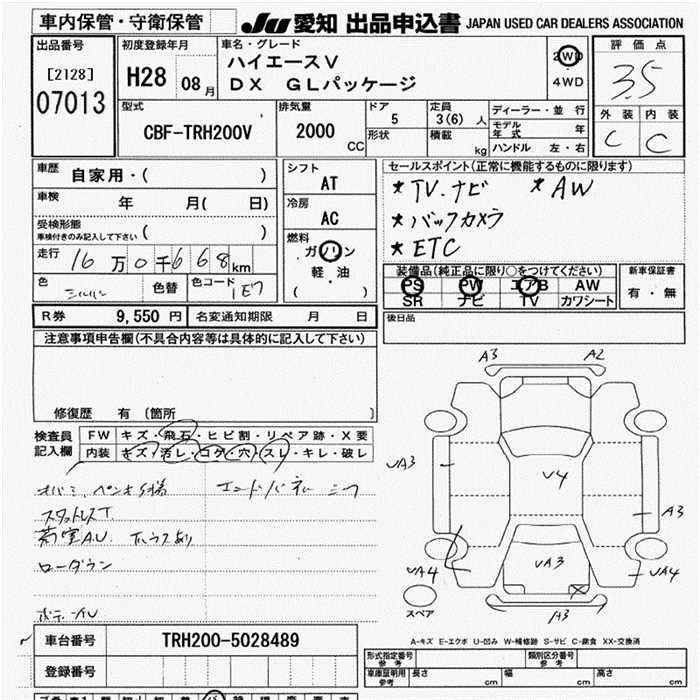 車内保管・守衛保管
JU 愛知 出品申込書 JAPAN USED CAR DEALERS ASSOCIATION
出品番号
[2128]
07013
初度登録年月
H28 08月
車名・グレード
ハイエースV
DX GLパッケージ
2WD
4WD
評価点
3.5
外装 内装
C C
型式
CBF-TRH200V
排気量
2000 CC
ドア
5
形状
定員
3(6) 人
積載
kg
ディーラー・並行
モデル年式 年
ハンドル 左・右
車歴
自家用・( )
車検
年 月( 日)
受検形態
車検付きのみ記入して下さい ( )
走行
16万0千668km
色
シルバー
色替
色コード
1E7
シフト
AT
冷房
AC
燃料
ガソリン
軽・油
( )
セールスポイント(正常に機能するものに限ります)
* TV.ナビ * AW
* バックカメラ
* ETC
装備品(純正品に限り○をつけてください)
PS PW エアB AW
SR ナビ TV カワシート
新車保証書
有・無
R券 9,550 円 名変通知期限 月 日
後日品
注意事項申告欄(不具合内容等は具体的に記入して下さい)
修復歴 有 〔箇所 〕
検査員
記入欄
FW キズ・飛石・ヒビ割・リペア跡・X要
内装 キズ・汚レ・コゲ・穴・スレ・キレ・破レ
スタットレスT.
ローダウン
A3 A2
UA3
V4
A3
UA4
UA3
UA4
A3
スペア
A-キズ E-エクボ U-凹み W-補修跡 S-サビ C-腐食 XX-交換済
車台番号 TRH200-5028489
登録番号
形式指定番号
参考
類別区分番号
参考
車庫証明用
参考
長さ cm 幅 cm 高さ cm